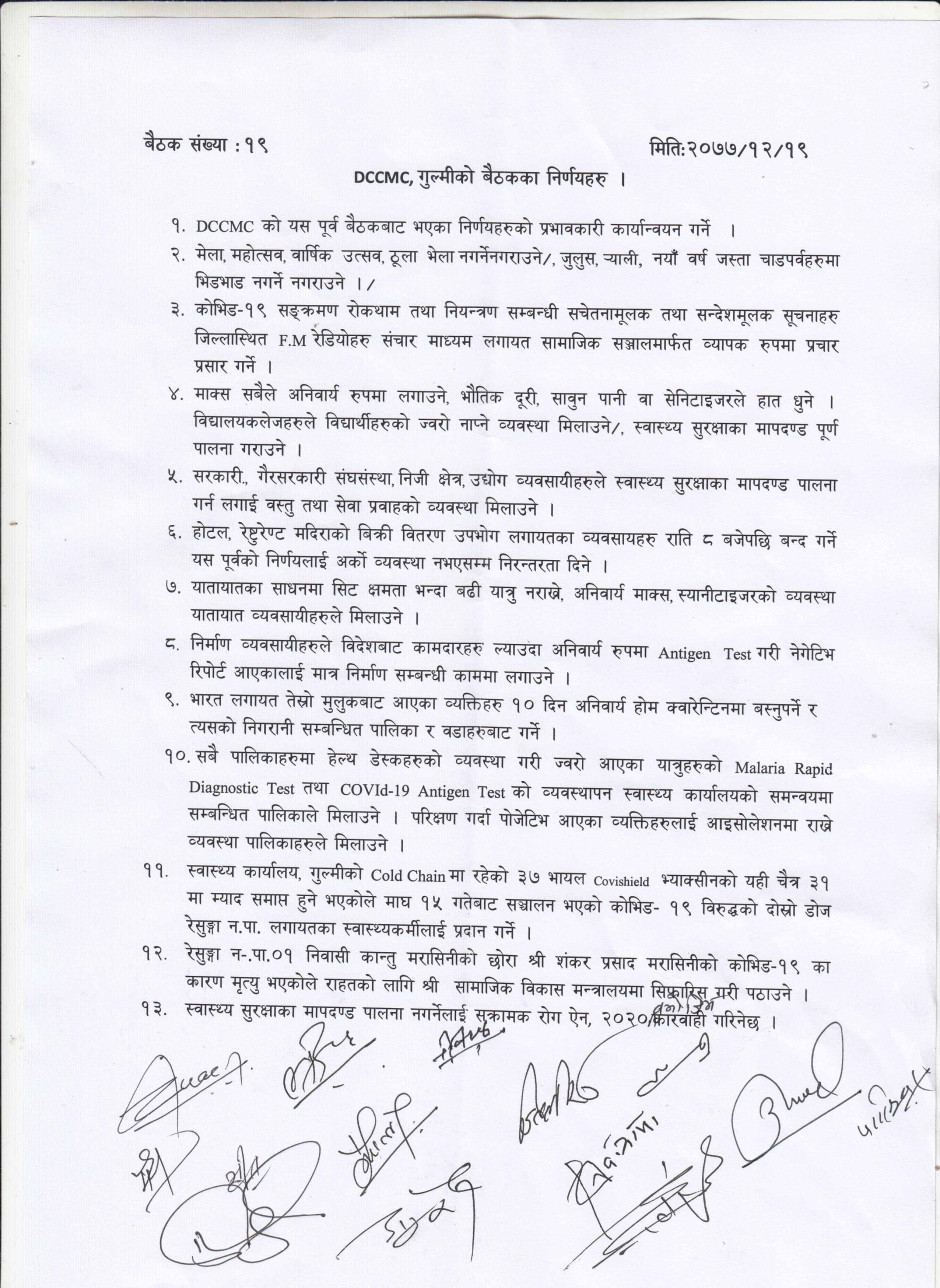 बैठक संख्या : १९
मिति:२०७७/१२/१९
DCCMC, गुल्मीको बैठकका निर्णयहरु ।
१. DCCMC को यस पूर्व बैठकबाट भएका निर्णयहरुको प्रभावकारी कार्यान्वयन गर्ने ।
२. मेला, महोत्सव, वार्षिक उत्सव, ठूला भेला नगर्नेनगराउने/, जुलुस, ऱ्याली, नयाँ वर्ष जस्ता चाडपर्वहरुमा
भिडभाड नगर्ने नगराउने ।/
३. कोभिड-१९ सङ्क्रमण रोकथाम तथा नियन्त्रण सम्बन्धी सचेतनामूलक तथा सन्देशमूलक सूचनाहरु
जिल्लास्थित F.M रेडियोहरु संचार माध्यम लगायत सामाजिक सञ्जालमार्फत व्यापक रुपमा प्रचार
प्रसार गर्ने ।
४. माक्स सबैले अनिवार्य रुपमा लगाउने, भौतिक दूरी, सावुन पानी वा सेनिटाइजरले हात धुने ।
विद्यालयकलेजहरुले विद्यार्थीहरुको ज्वरो नाप्ने व्यवस्था मिलाउने/, स्वास्थ्य सुरक्षाका मापदण्ड पूर्ण
पालना गराउने ।
५. सरकारी,, गैरसरकारी संघसंस्था, निजी क्षेत्र, उद्योग व्यवसायीहरुले स्वास्थ्य सुरक्षाका मापदण्ड पालना
गर्न लगाई वस्तु तथा सेवा प्रवाहको व्यवस्था मिलाउने ।
६. होटल, रेष्टुरेण्ट मदिराको बिक्री वितरण उपभोग लगायतका व्यवसायहरु राति ८ बजेपछि बन्द गर्ने
यस पूर्वको निर्णयलाई अर्को व्यवस्था नभएसम्म निरन्तरता दिने ।
७. यातायातका साधनमा सिट क्षमता भन्दा बढी यात्रु नराख्ने, अनिवार्य माक्स, स्यानीटाइजरको व्यवस्था
यातायात व्यवसायीहरुले मिलाउने ।
८. निर्माण व्यवसायीहरुले विदेशबाट कामदारहरु ल्याउंदा अनिवार्य रुपमा Antigen Test गरी नेगेटिभ
रिपोर्ट आएकालाई मात्र निर्माण सम्बन्धी काममा लगाउने ।
९. भारत लगायत तेस्रो मुलुकवाट आएका व्यक्तिहरु १० दिन अनिवार्य होम क्वारेन्टिनमा बस्नुपर्ने र
त्यसको निगरानी सम्बन्धित पालिका र वडाहरुबाट गर्ने ।
१०. सबै पालिकाहरुमा हेल्थ डेस्कहरुको व्यवस्था गरी ज्वरो आएका यात्रुहरुको Malaria Rapid
Diagnostic Test तथा COVId-19 Antigen Test को व्यवस्थापन स्वास्थ्य कार्यालयको समन्वयमा
सम्बन्धित पालिकाले मिलाउने । परिक्षण गर्दा पोजेटिभ आएका व्यक्तिहरुलाई आइसोलेशनमा राख्ने
व्यवस्था पालिकाहरुले मिलाउने ।
११. स्वास्थ्य कार्यालय, गुल्मीको Cold Chain मा रहेको ३७ भायल Covishield भ्याक्सीनको यही चैत्र ३१
मा म्याद समाप्त हुने भएकोले माघ १५ गतेबाट सञ्चालन भएको कोभिड- १९ विरुद्धको दोस्रो डोज
रेसुङ्गा न.पा. लगायतका स्वास्थ्यकर्मीलाई प्रदान गर्ने ।
१२. रेसुङ्गा न-.पा.०१ निवासी कान्तु मरासिनीको छोरा श्री शंकर प्रसाद मरासिनीको कोभिड-१९ का
कारण मृत्यु भएकोले राहतको लागि श्री सामाजिक विकास मन्त्रालयमा सिफारिस गरी पठाउने ।
१३. स्वास्थ्य सुरक्षाका मापदण्ड पालना नगर्नेलाई सुक्रामक रोग ऐन, २०२० कारवाही गरिनेछ ।